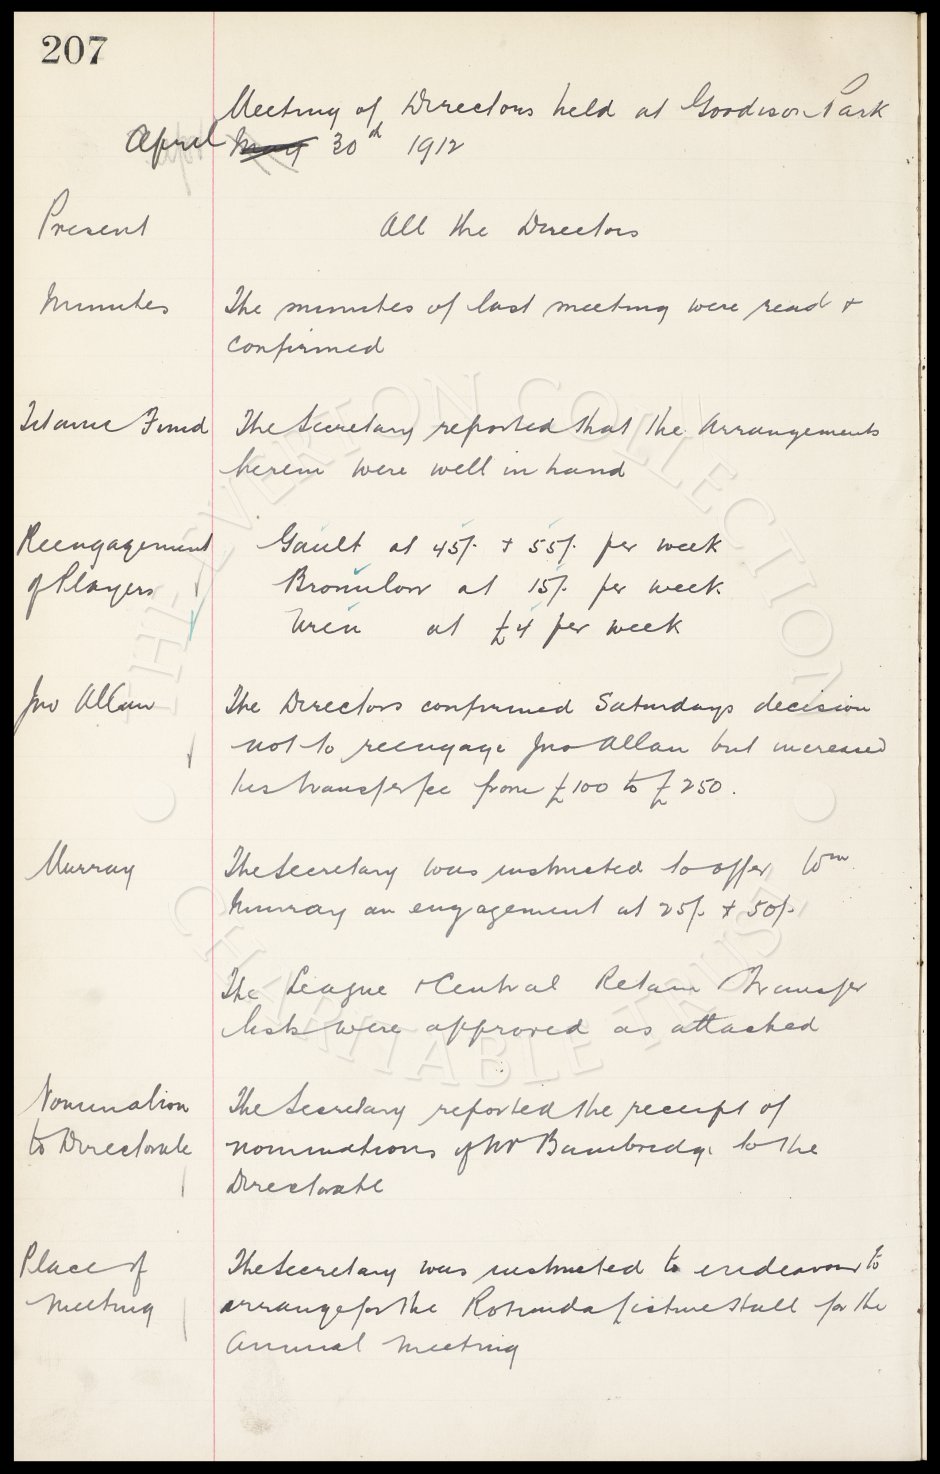 207
Meeting of Directors held at Goodison Park
April May 30d 1912
Present All the Directors
Minutes The minutes of last meeting were read +
confirmed
Titanic Fund The Secretary reported that the arrangements
herein were well in hand
Reengagement Gault at 45/- + 55/- per week
of Players Bromilow at 15/- per week
Uren at £4 per week
Jno Allan The Directors confirmed Saturdays decision
not to reengage Jno Allan but increased
his transfer fee from £100 to £250.
Murray The Secretary was instructed to offer Wm
Murray an engagement at 25/- + 50/-
The League + Central Retain + Transfer
lists were approved as attached
Nomination The Secretary reported the receipt of
to Directorate nominations of Mr Bainbridge to the
Directorate
Place of The Secretary was instructed to endeavour to
meeting arrange for the Rotunda Lecture Hall for the
Annual Meeting
THE EVERTON COLLECTION
CHARITABLE TRUST